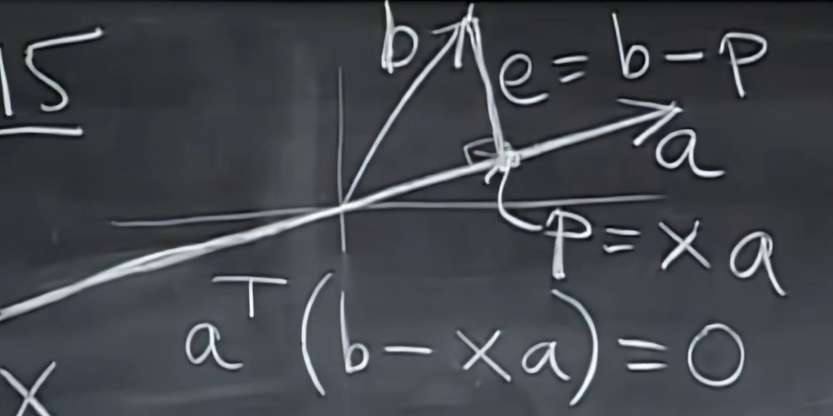 15
b
e = b - p
a
p = x a
aᵀ (b - x a) = 0
x